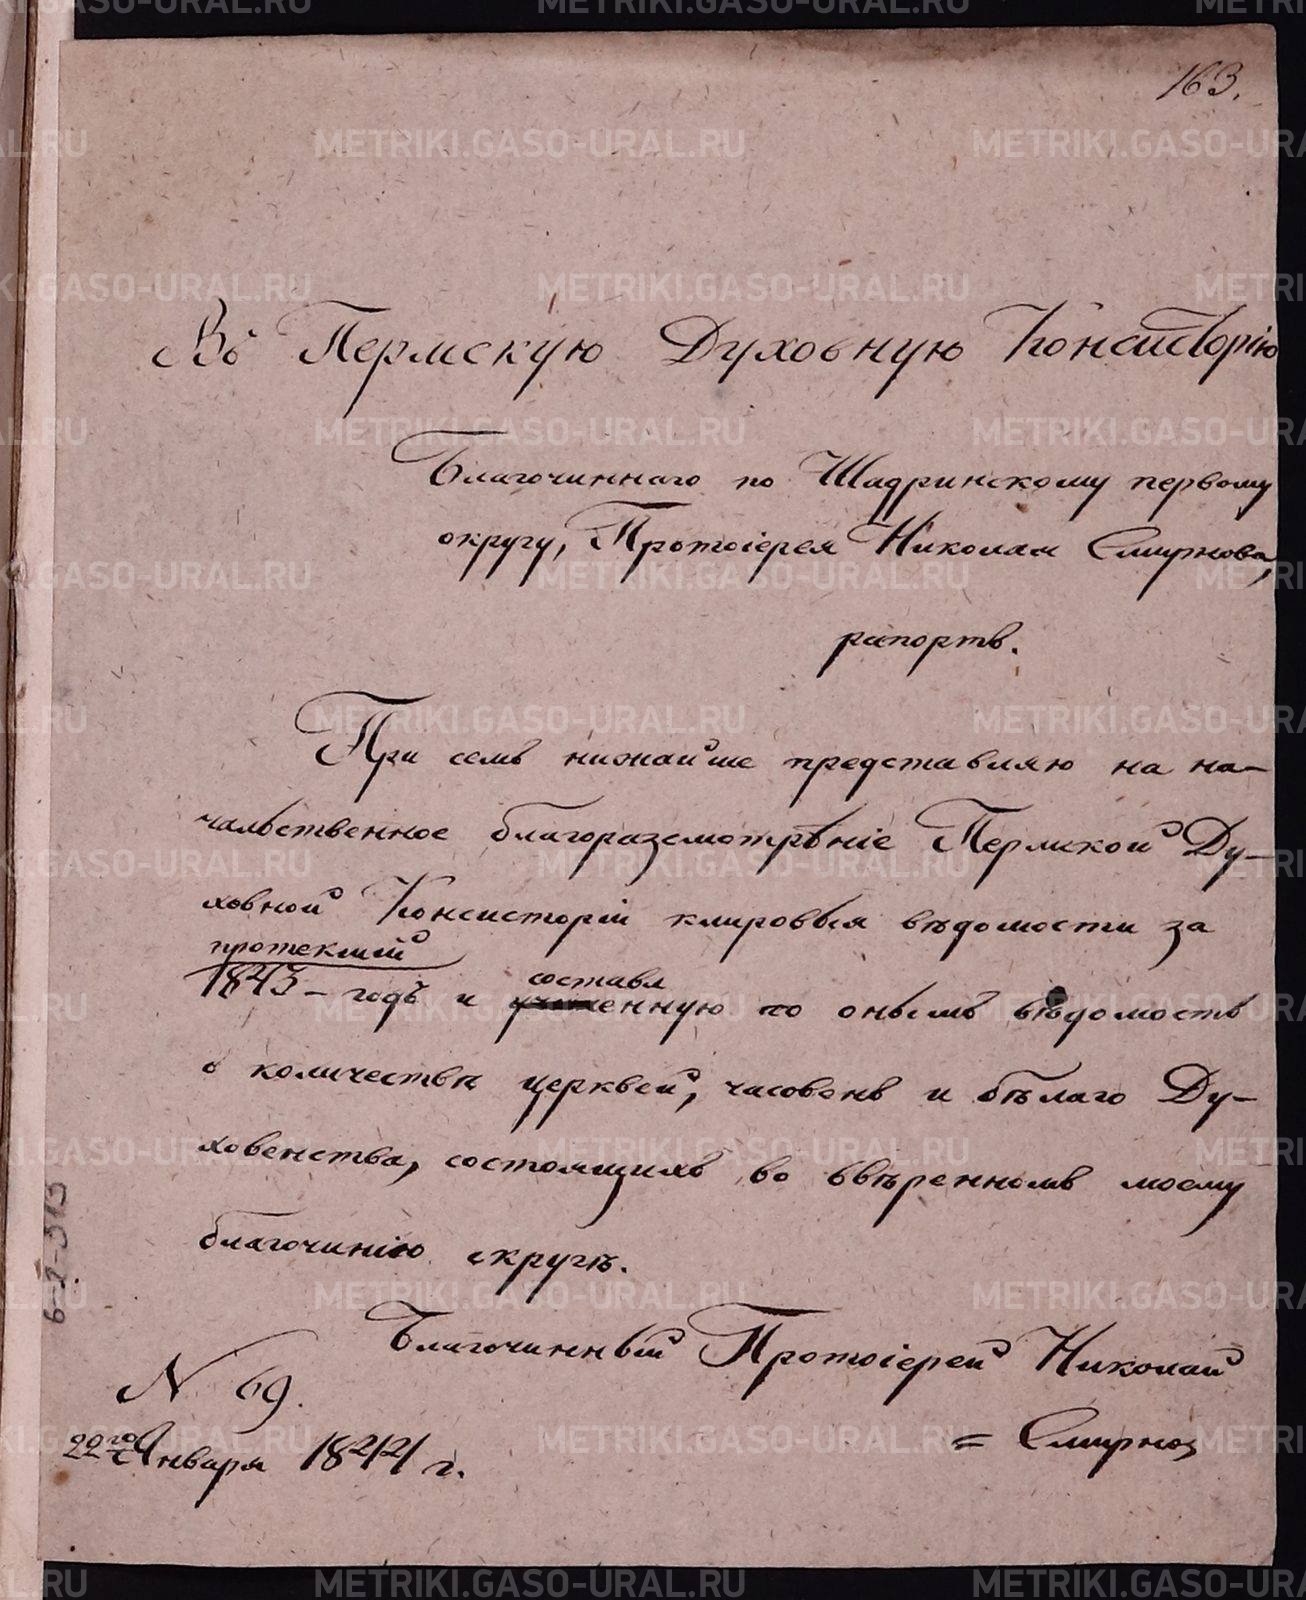 163.
Въ Пермскую Духовную Консисторію
Благочиннаго по Шадринскому первому
округу, Протоіерея Николая Смирнова,
рапортъ.
При семъ нижайше представляю на на-
чальственное благоразсмотрѣніе Пермской Ду-
ховной Консисторіи клировыя вѣдомости за
протекшій
1843 - годъ и составленную по онымъ вѣдомость
о количествѣ церквей, часовенъ и бѣлаго Ду-
ховенства, состоящихъ во ввѣренномъ моему
благочинію округѣ.
Благочинный Протоіерей Николай
= Смирнов
N 69.
22го Января 1844 г.
6-2-313
METRIKI.GASO-URAL.RU